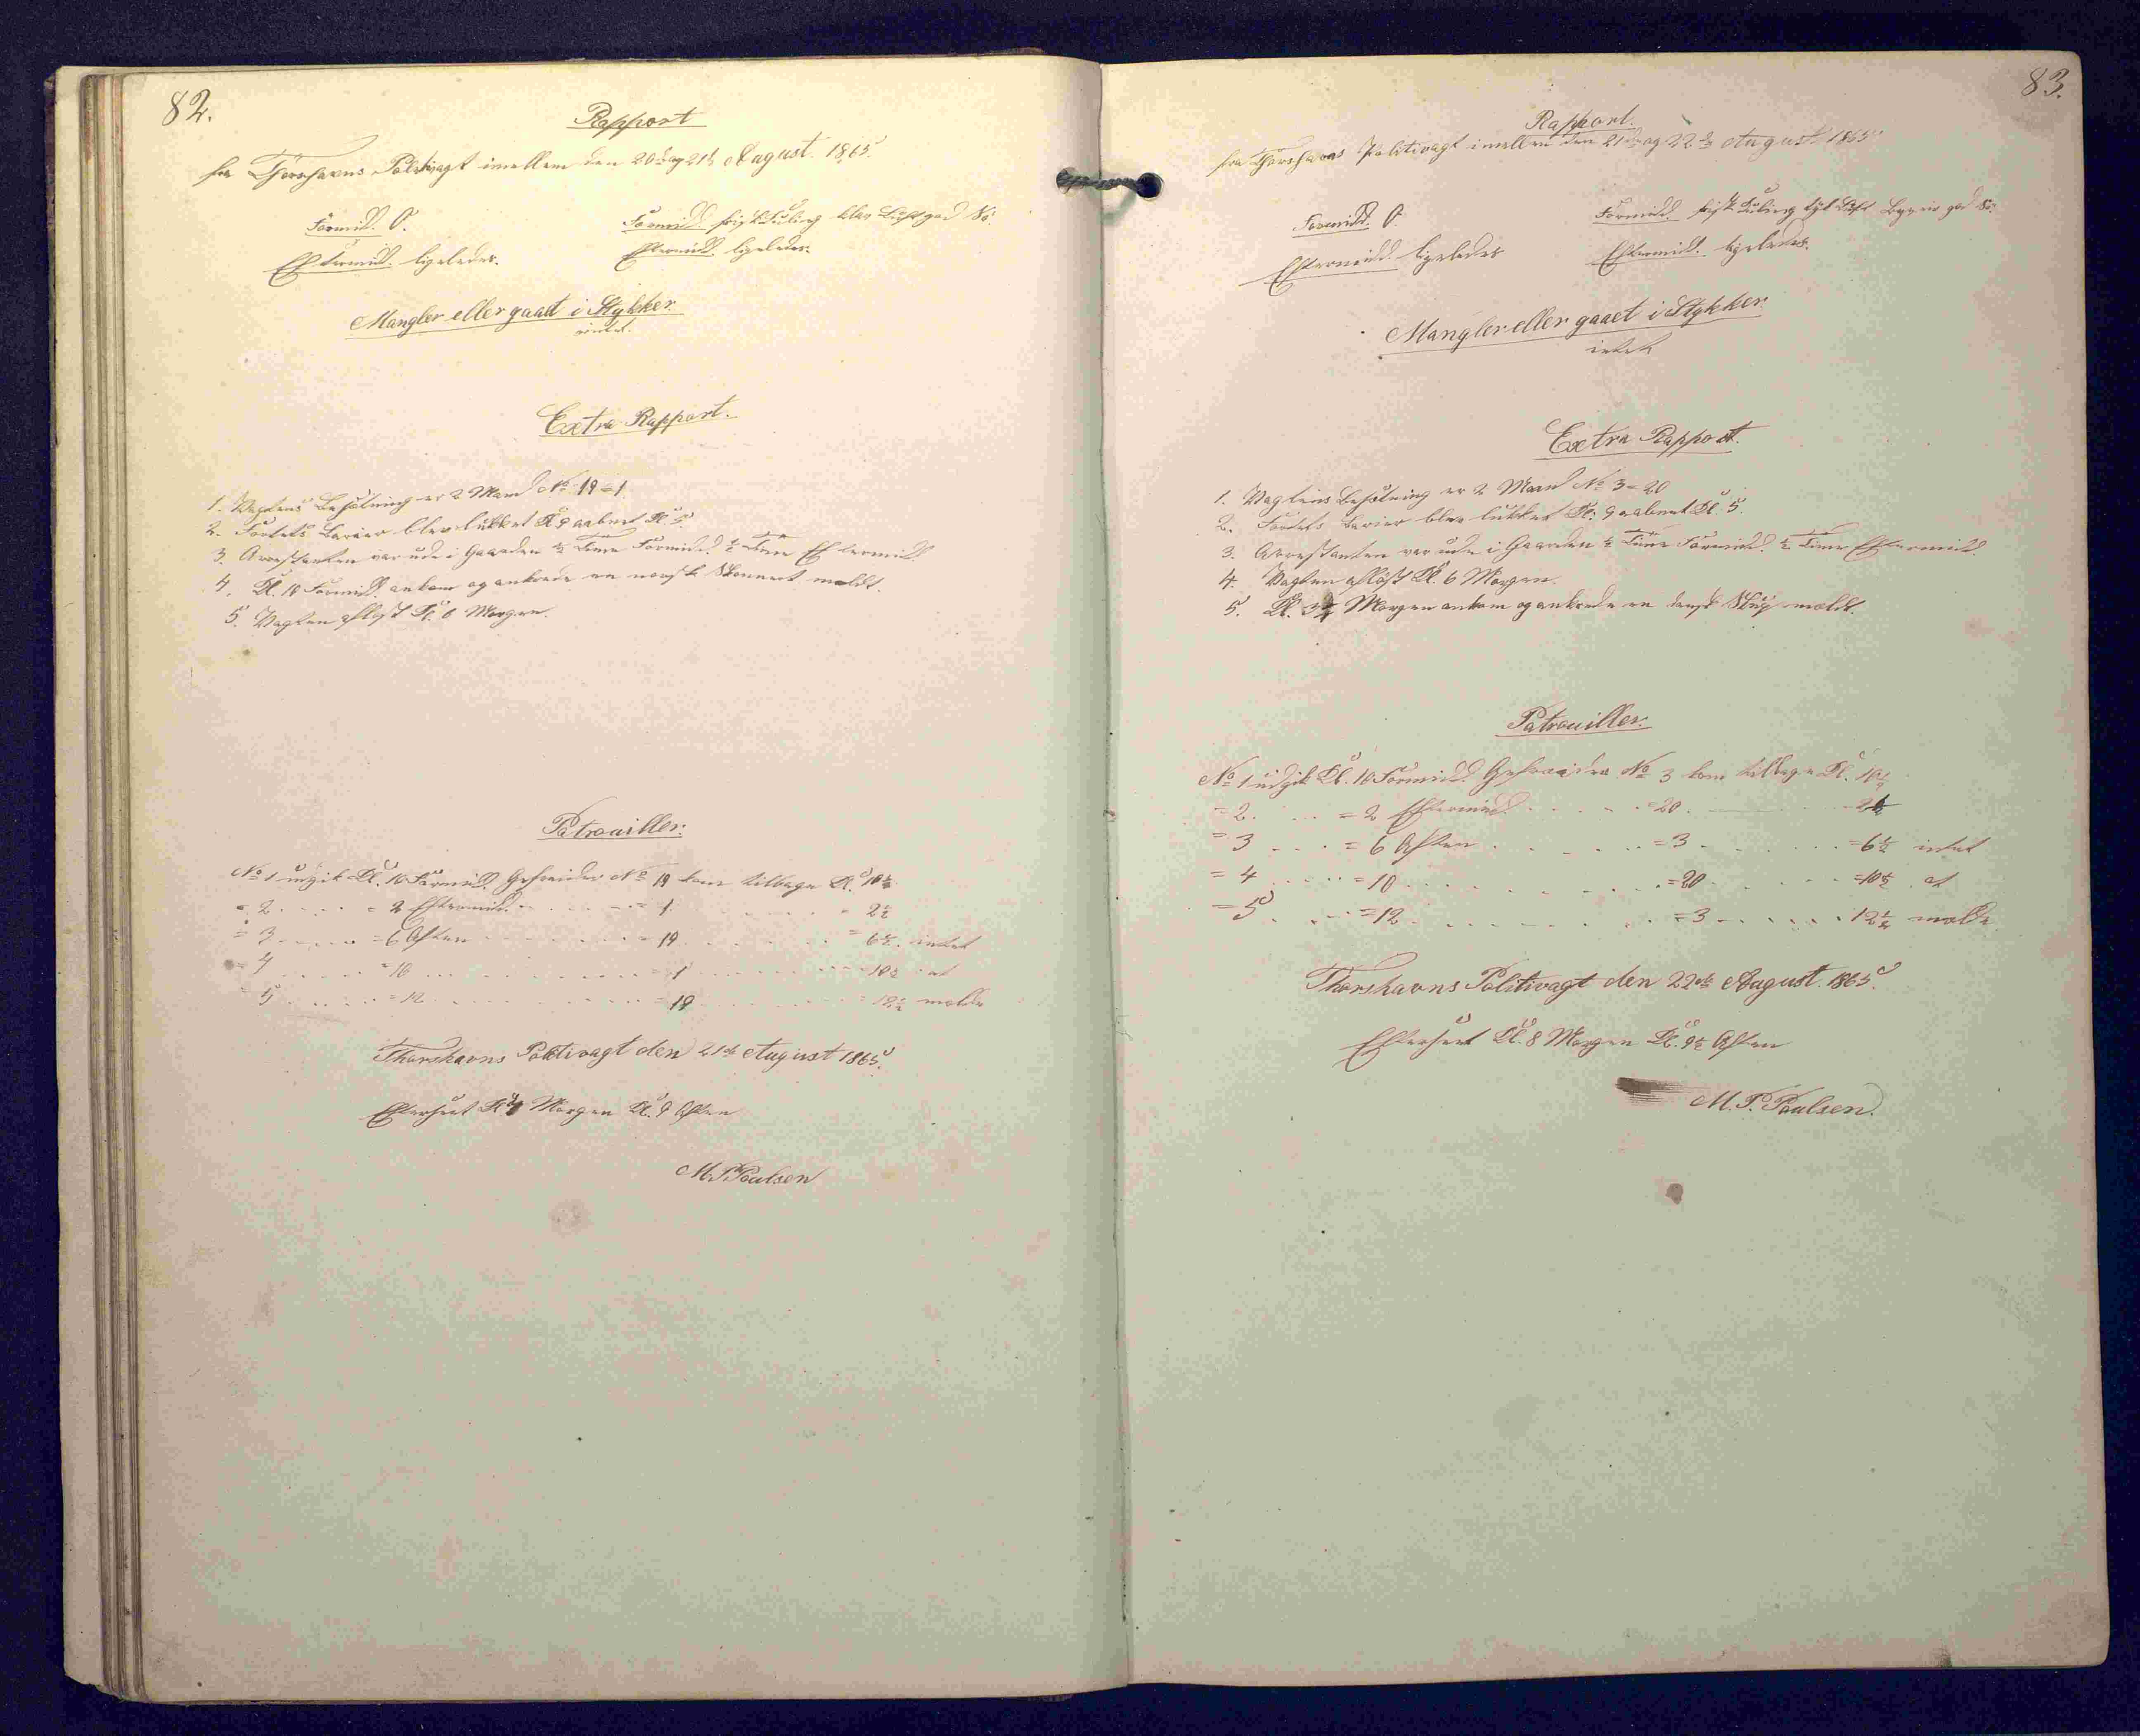 82.
Rapport
fra Thorshavns Politivagt imellem den 20de og 21de August. 1865.
Formid. O.
Formidd. frisk Kuling klar Luft god Sö.
Eftermid. ligeledes.
Eftermid. ligeledes.
Mangler eller gaaet i Stykker.
intet.
Extra Rapport.
1. Vagtens Besætning er 2 Mand No 19 = 1.
2. Fortets Barier blev lukket Kl. 9 aabnet Kl. 5
3. Arrestanten var ude i Gaarden ½ Time Formidd. ½ Time Eftermidd.
4. Kl. 10 Formidd. ankom og ankrede en norsk Skonnert meldt.
5. Vagten aflöst Kl. 6 Morgen.
Patrouiller.
No 1 udgik Kl. 10 Formidd. Gefreider No 19 kom tilbage Kl. 10½
= 2 . . . . = 2 Eftermid. . . . . = 1 . . . . = 2½
= 3 . . . . = 6 Aften . . . . = 19 . . . . = 6½ intet
= 4 . . . . = 10 . . . . = 1 . . . . = 10½ at
= 5 . . . . = 12 . . . . = 19 . . . . = 12½ melde
Thorshavns Politivagt den 21de August 1865.
Efterseet Kl. Morgen Kl. 9 Aften
M.P. Poulsen
83.
Rapport.
fra Thorshavns Politivagt imellem den 21de og 22de August 1865
Formidd. O.
Formidd. frisk Kuling tyk Luft god Sö.
Eftermidd. ligeledes
Eftermidd. ligeledes.
Mangler eller gaaet i Stykker.
intet
Extra Rapport.
1. Vagtens Besætning er 2 Mand No 3 = 20
2. Fortets Barier blev lukket Kl. 9 aabnet Kl. 5.
3. Arrestanten var ude i Gaarden ½ Time Formidd. ½ Time Eftermidd.
4. Vagten aflöst Kl. 6 Morgen.
5. Kl. 3½ Morgen ankom og ankrede en dansk Slup meldt.
Patrouiller.
No 1 udgik Kl. 10 Formidd. Gefreider No 3 kom tilbage Kl. 10½
= 2 . . . . = 2 Eftermidd. . . . . = 20 . . . . = 2½
= 3 . . . . = 6 Aften . . . . = 3 . . . . = 6½ intet
= 4 . . . . = 10 . . . . = 20 . . . . = 10½ at
= 5 . . . . = 12 . . . . = 3 . . . . 12½ melde
Thorshavns Politivagt den 22de August. 1865.
Efterseet Kl. 8 Morgen Kl. 9½ Aften
M.P. Poulsen.